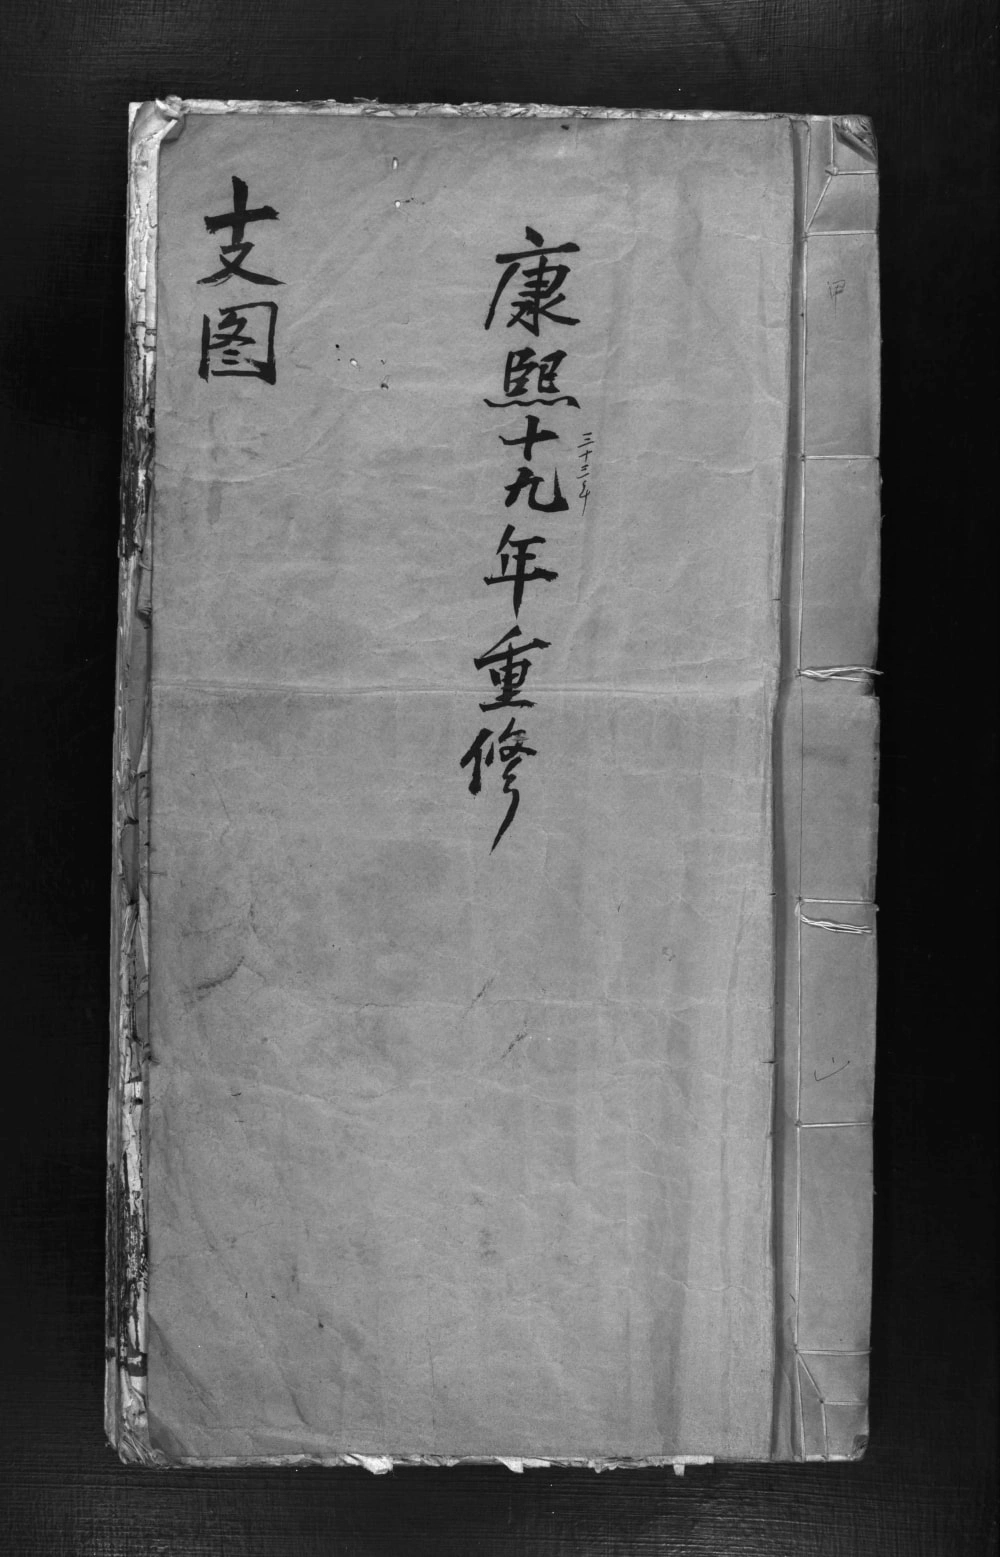 康熙十九年重修
三十三年
支图